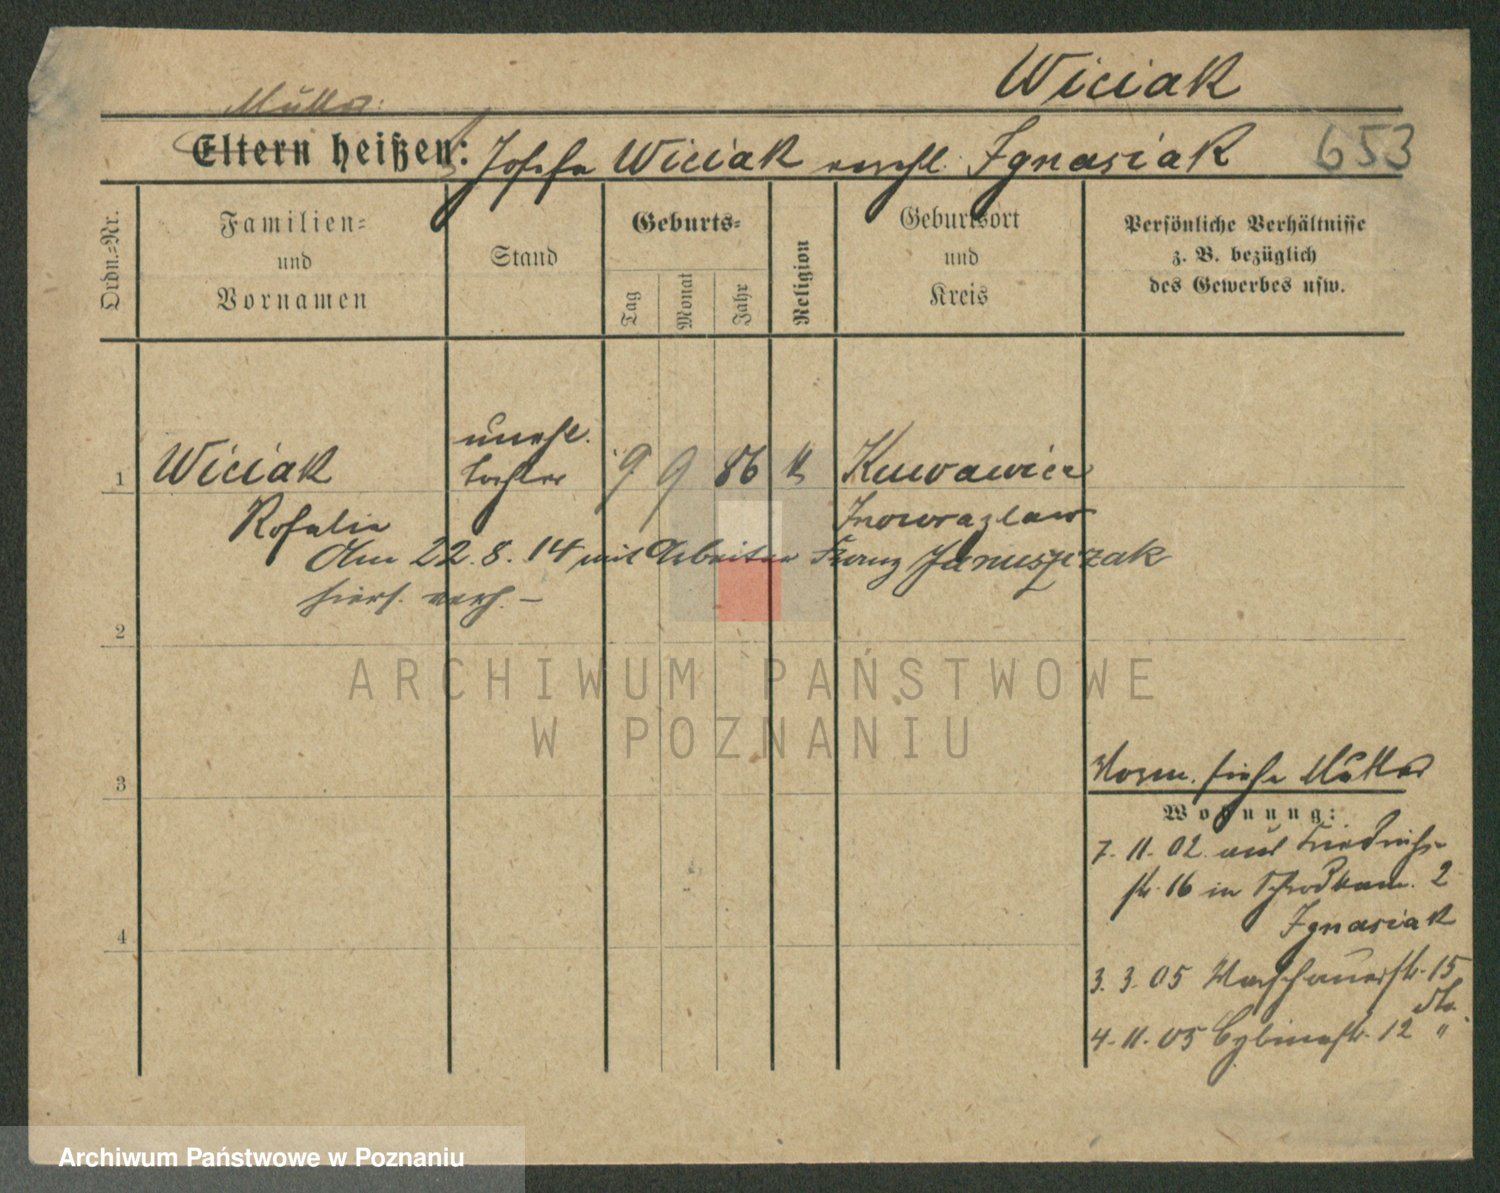 Wiciak
Mutter:
Eltern heißen: Josefa Wiciak verehl. Ignasiak 653
Ordn.=Nr.
Familien=
und
Vornamen
Stand
Geburts=
Tag
Monat
Jahr
Religion
Geburtsort
und
Kreis
Persönliche Verhältnisse
z. B. bezüglich
des Gewerbes usw.
unehl.
1 Wiciak Tochter 9 9 86 k
Rosalie Inowrazlaw
Am 22.8.14 mit Arbeiter Franz Januszczak
hiers. verh. –
2
ARCHIWUM PAŃSTWOWE
W POZNANIU
3
Vorm. siehe Mutter
Wohnung:
7. 11. 02. aus Friedrich-
str. 16 in 2
Ignasiak
4
3. 3. 05 Warschauerstr. 15
dto.
4. 11. 05 Cybinastr. 12 "
Archiwum Państwowe w Poznaniu